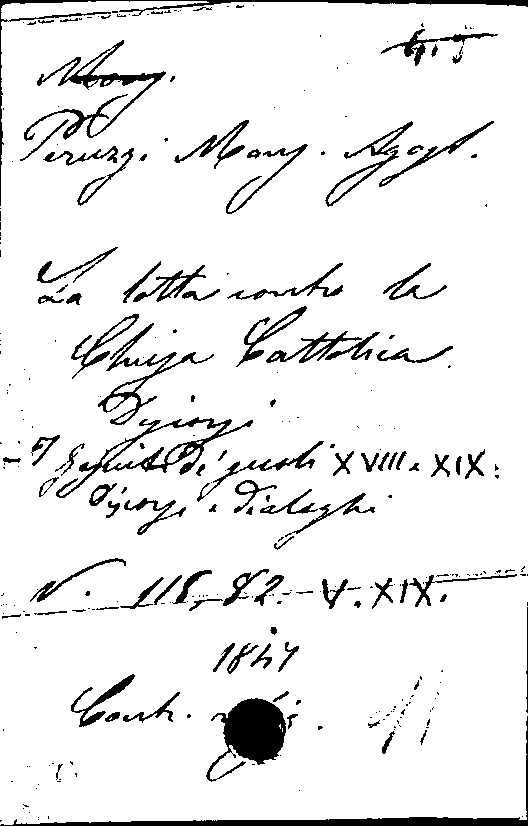 Peruzzi Mons. Agost.
La lotta contro la
Chiesa Cattolica
Discorsi
Seguito di secoli XVIII e XIX:
discorsi e dialoghi
N. 118, 82. V. XIX.
1847
Contr.